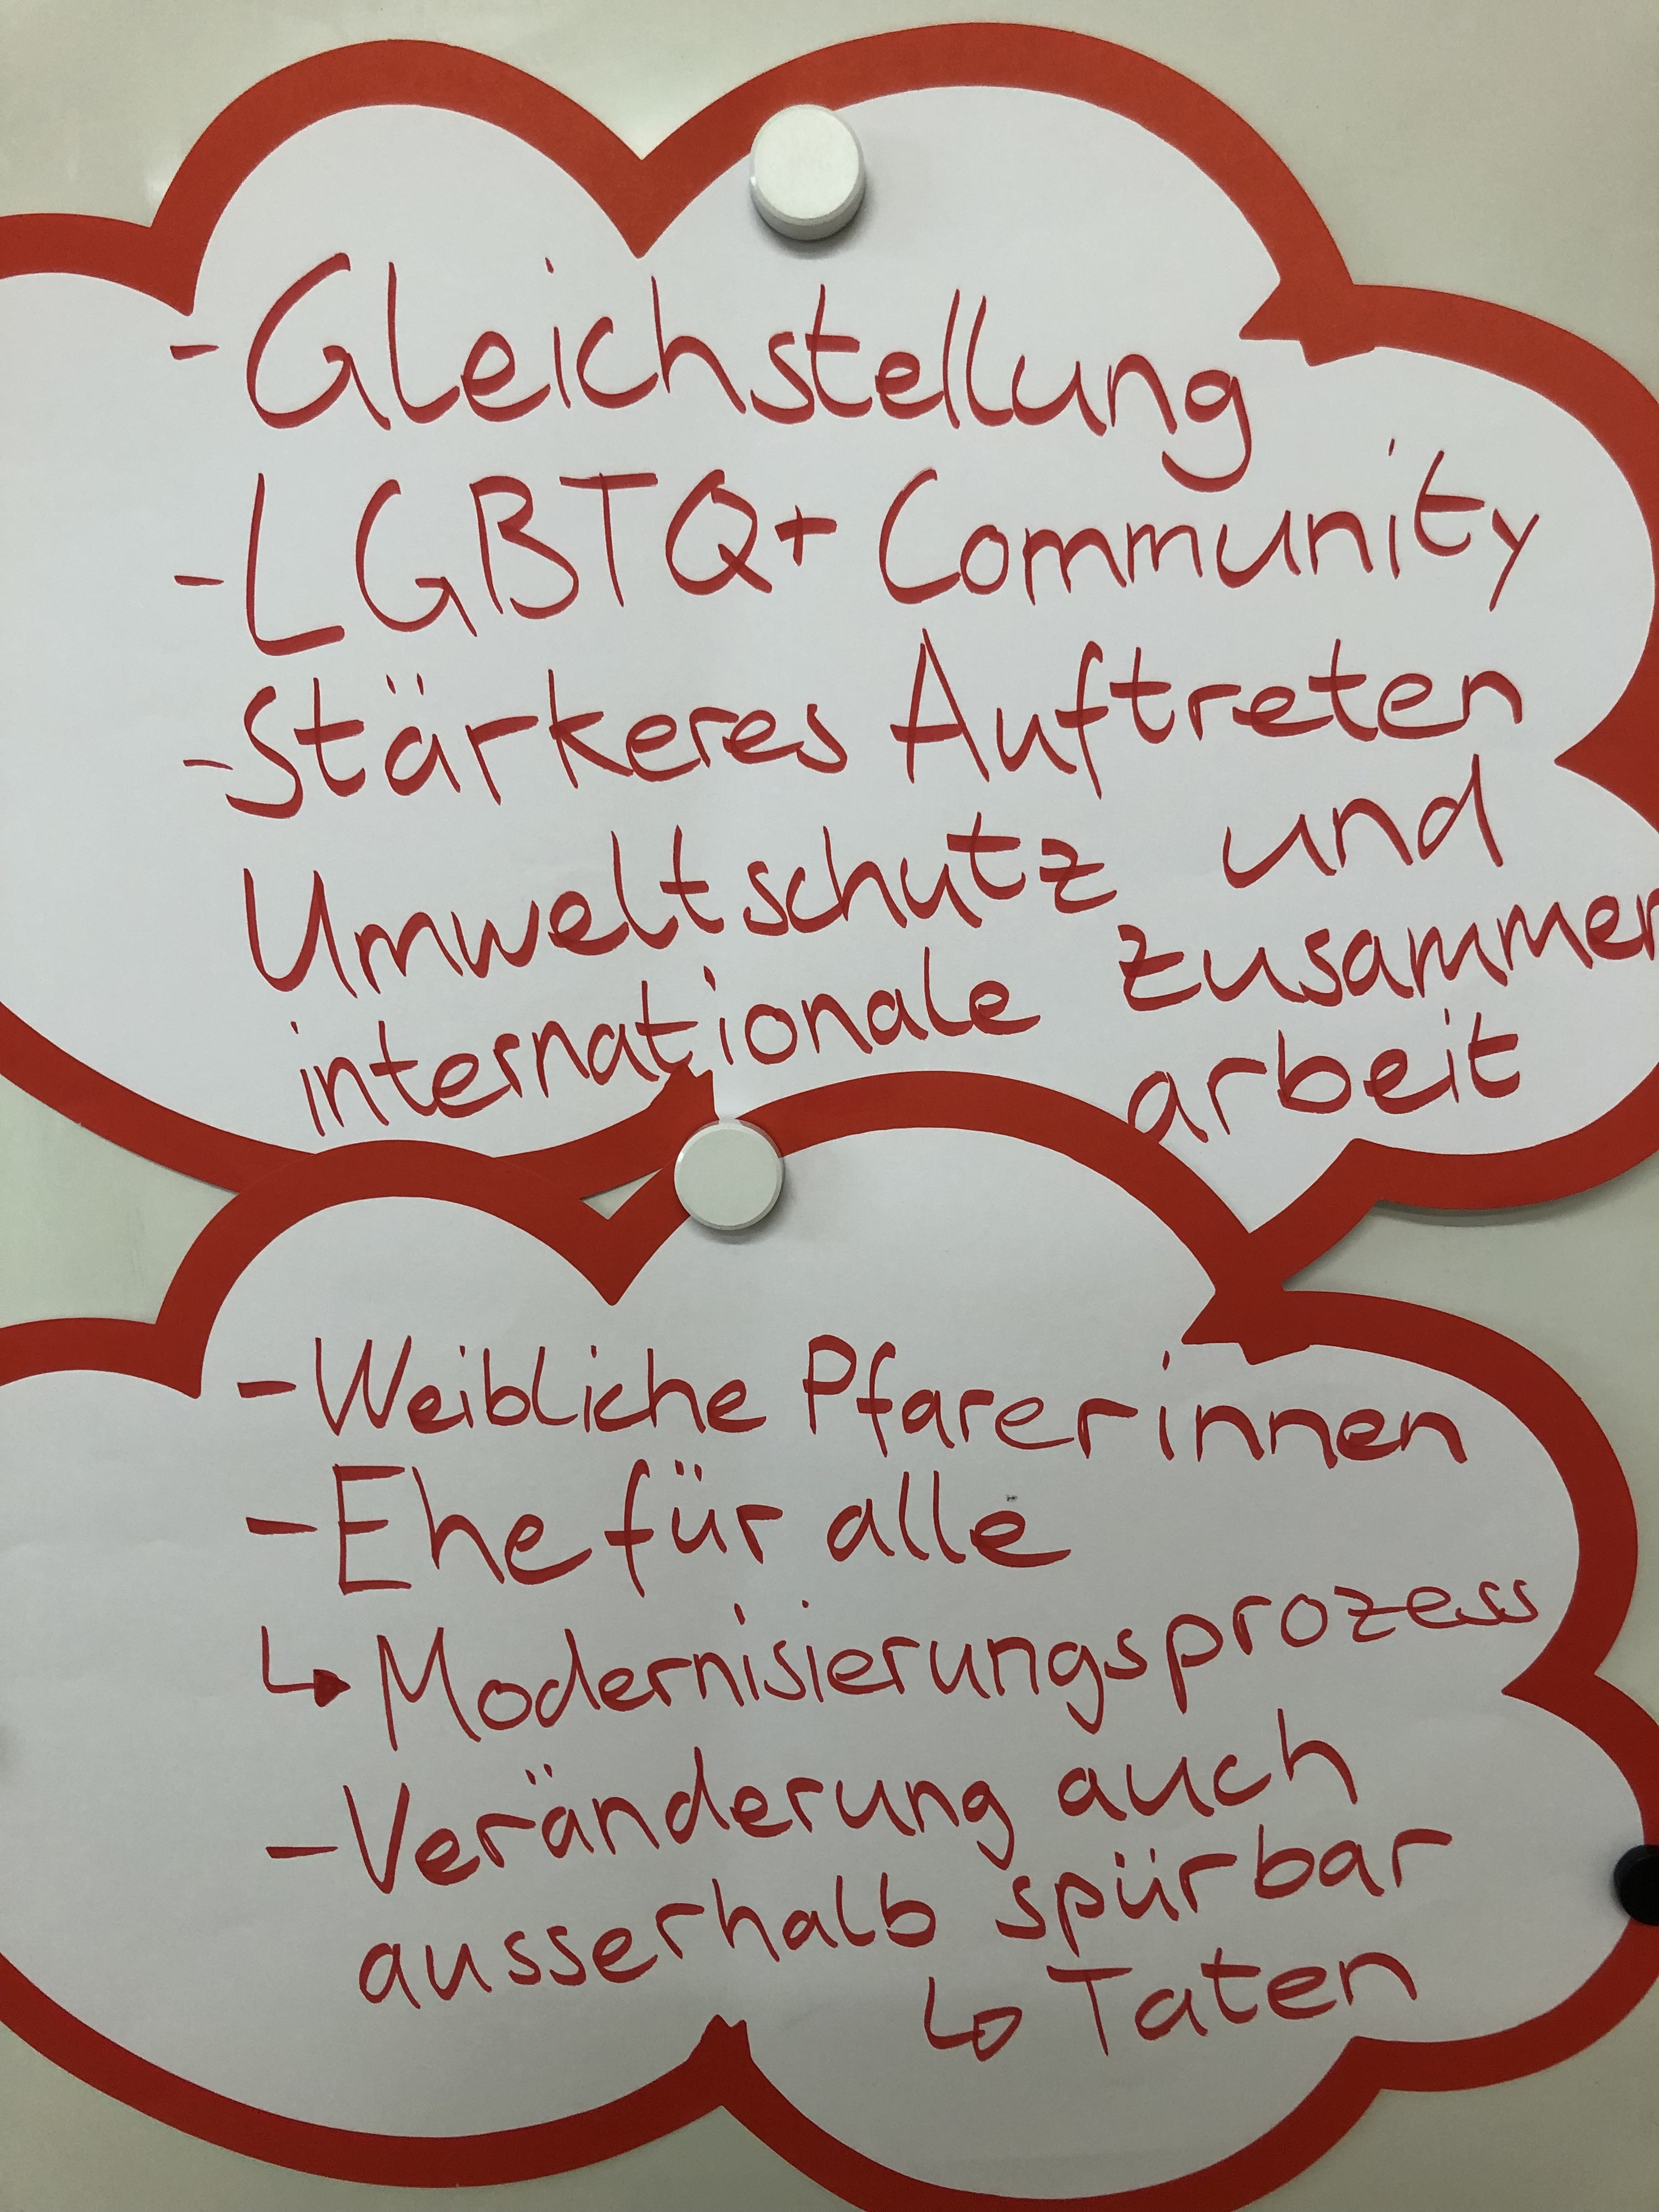 - Gleichstellung
- LGBTQ+ Community
- Stärkeres Auftreten
Umweltschutz und
internationale Zusammen
arbeit
- Weibliche Pfarerinnen
- Ehe für alle
↳ Modernisierungsprozess
- Veränderung auch
ausserhalb spürbar
↳ Taten